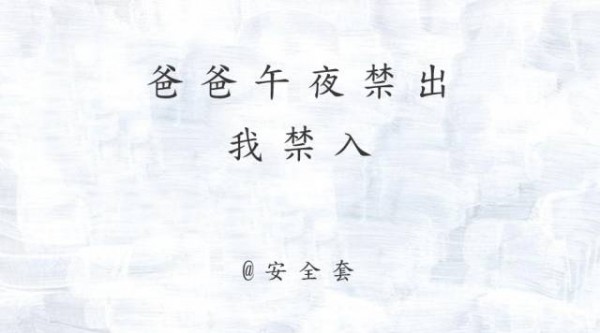 爸爸午夜禁出
我禁入
@安全套